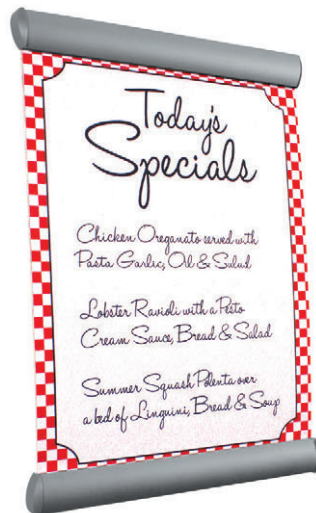 Today's
Specials
Chicken Oreganato served with
Pasta Garlic, Oil & Salad
Lobster Ravioli with a Pesto
Cream Sauce, Bread & Salad
Summer Squash Polenta over
a bed of Linguini, Bread & Soup